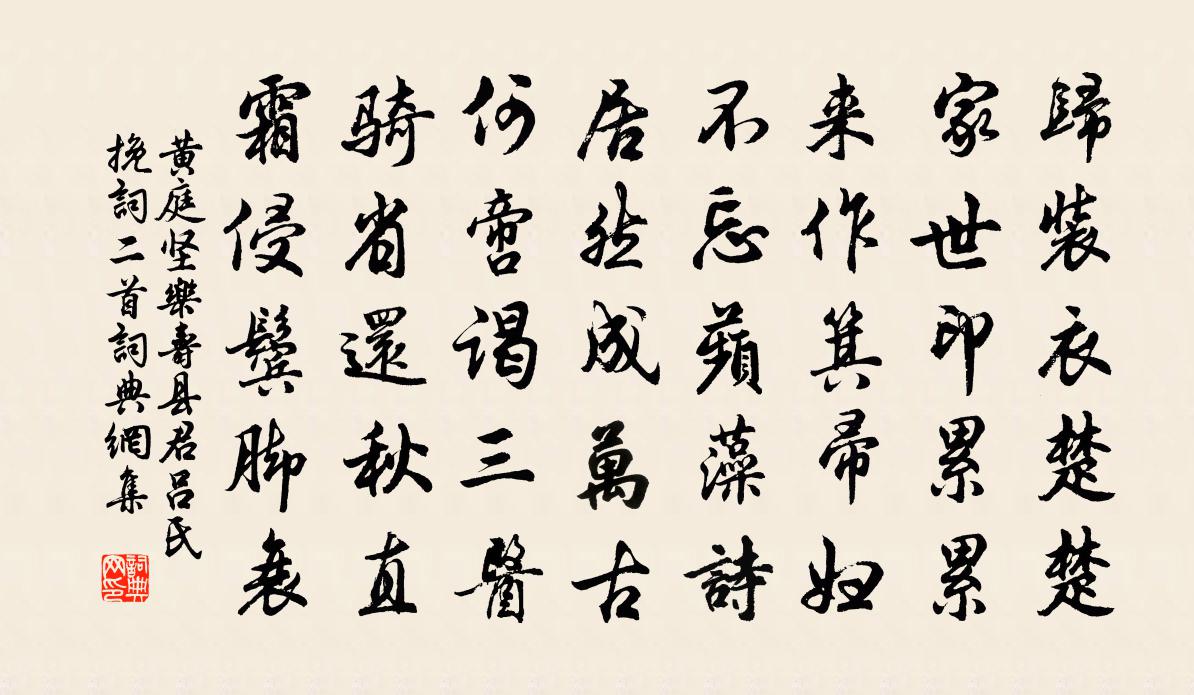 歸裝衣楚楚
家世印累累
来作箕帚妇
不忘蘋藻詩
居然成萬古
何啻謁三醫
骑省還秋直
霜侵鬢脚衰
黄庭坚樂壽县君吕氏
挽詞二首詞典網集
詞典网印